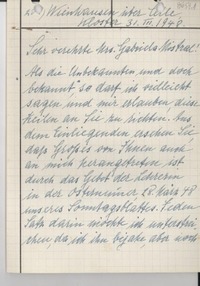 Wienhausen über Celle
Kloster 31. III. 1948.
Sehr verehrte Mrs. Gabriela Mistral!
Als die Unbekannten, und doch
bekannt so darf ich vielleicht
sagen, und mir erlauben diese
Zeilen an Sie zu richten. Aus
dem Einliegenden ersehen Sie
dass Großes von Ihnen auch
an mich herangetreten ist
durch das Gebet der Lehrerin
in der Osternummer 28. März 48
unseres Sonntagsblattes. Jeden
Satz darin möchte ich unterstrei-
chen, da ich ihn bejahe aber noch